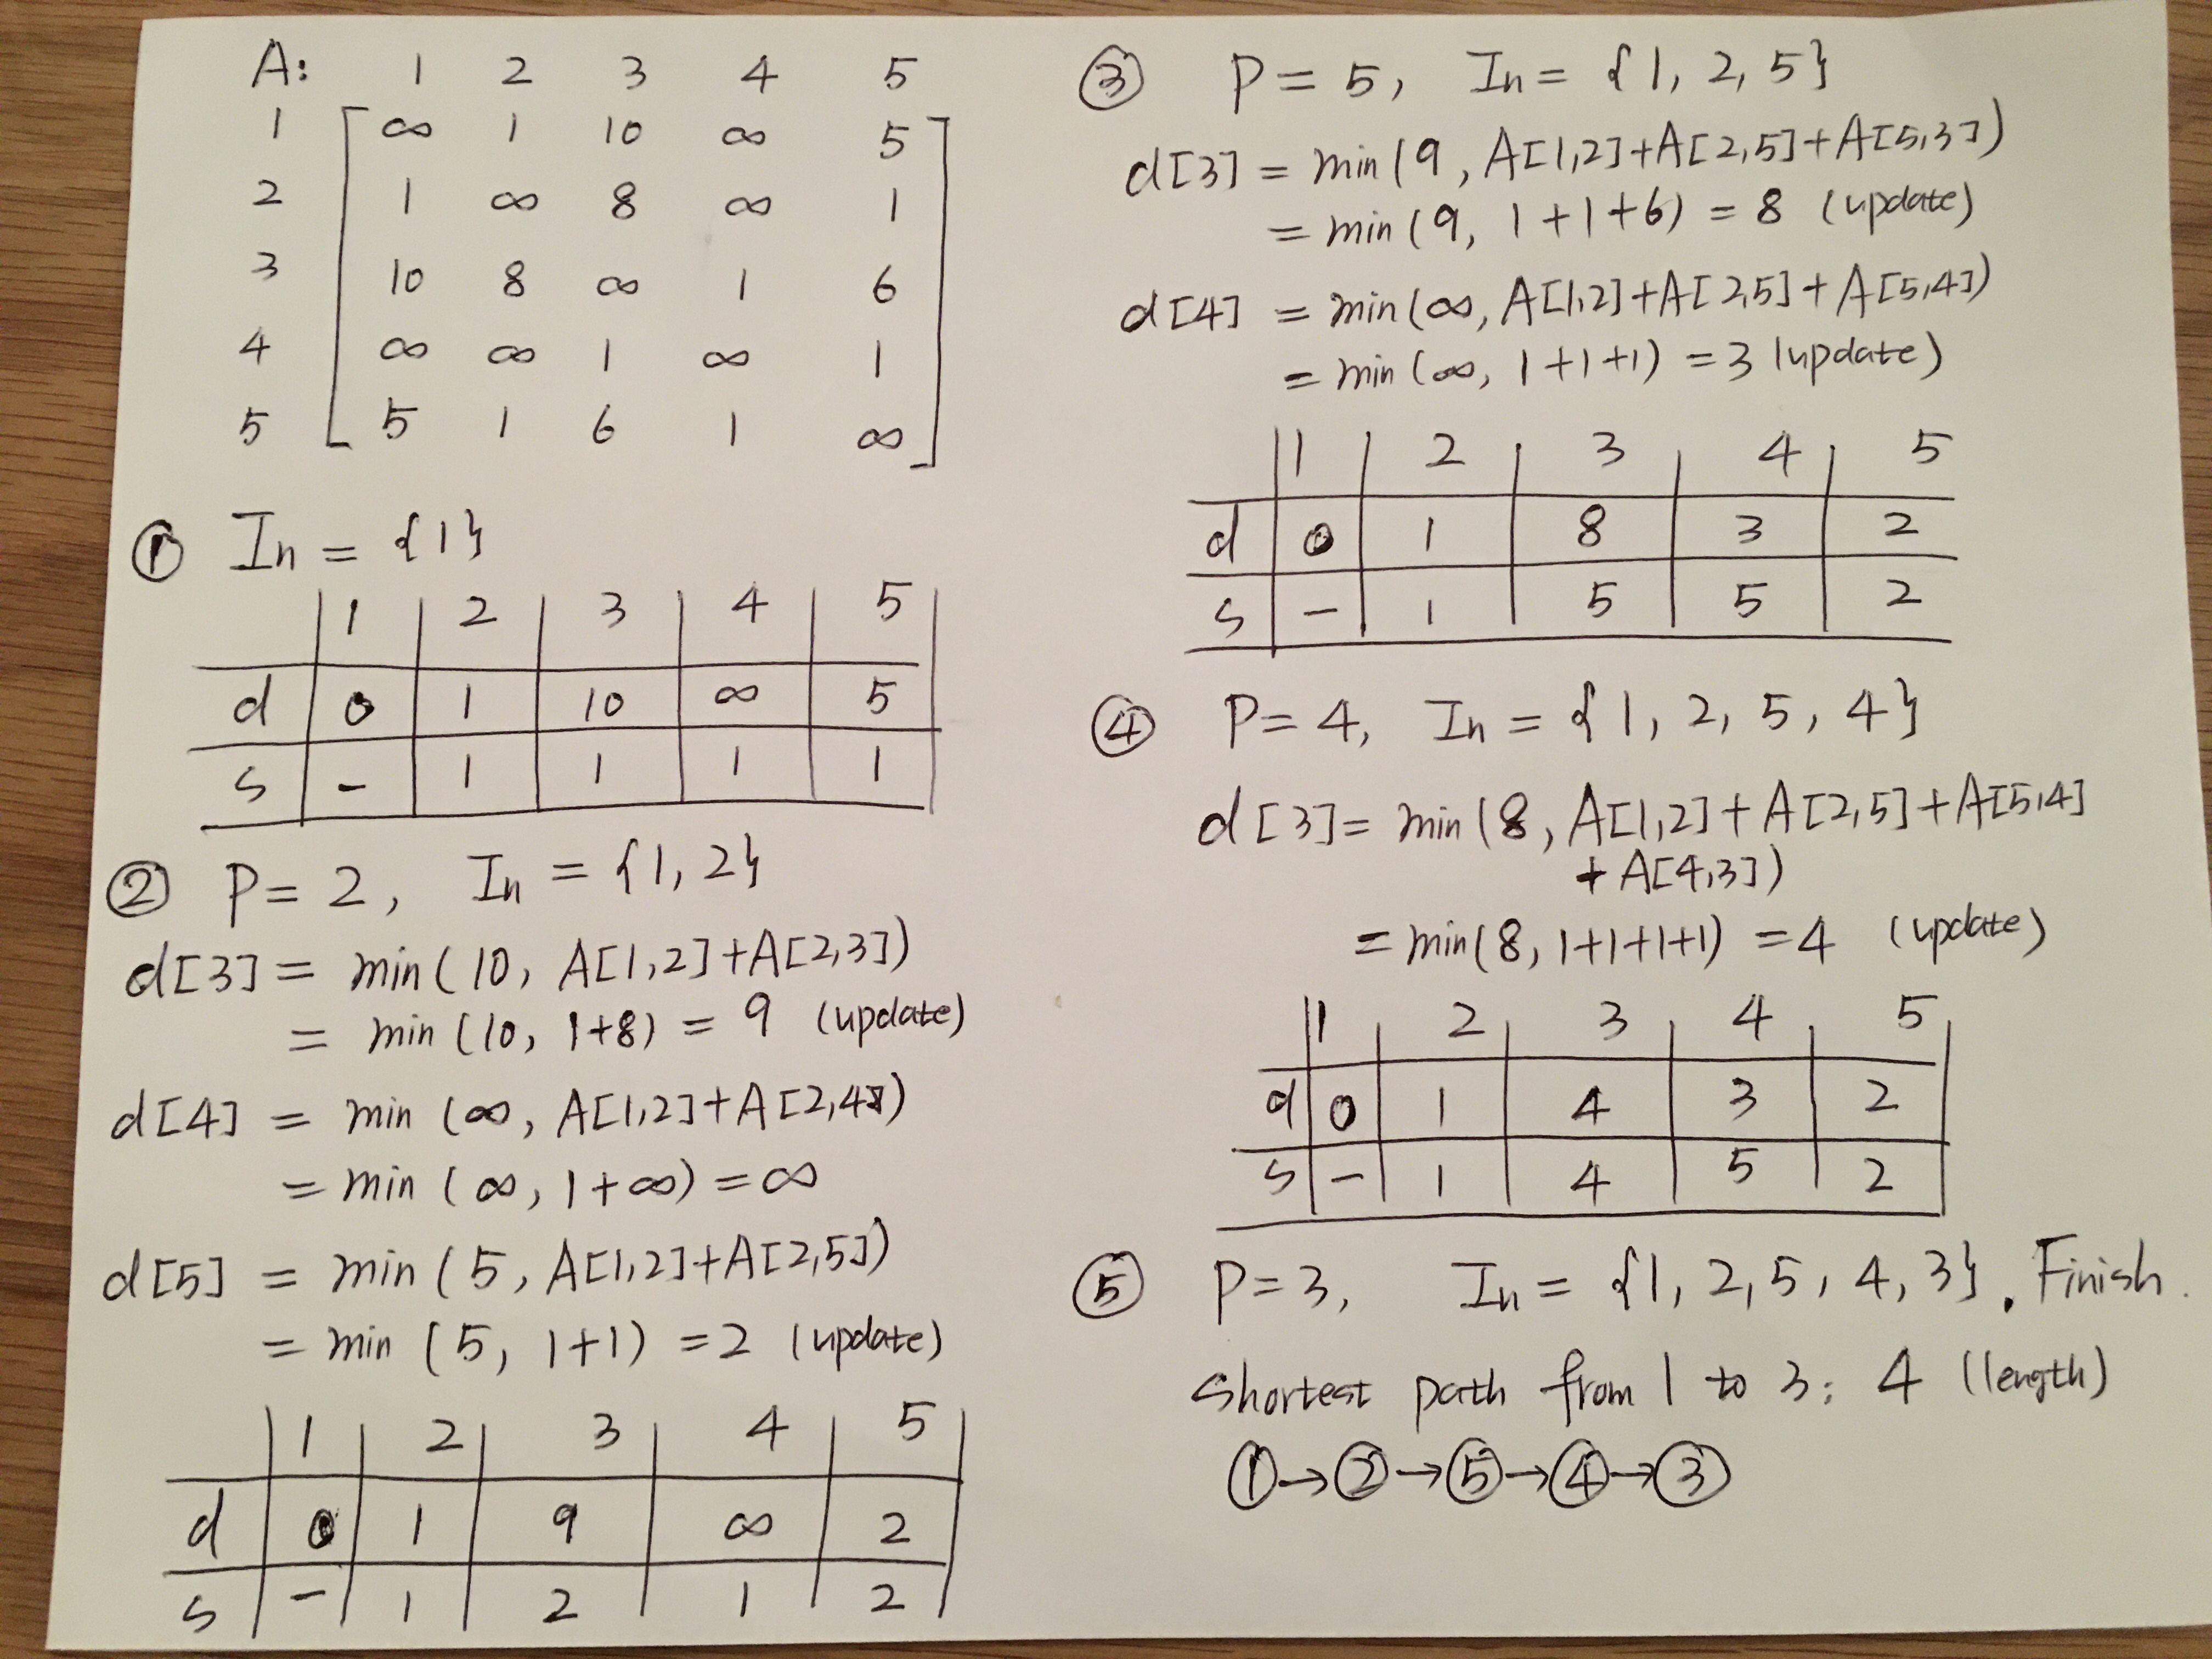 A: 1 2 3 4 5
1 ∞ 1 10 ∞ 5
2 1 ∞ 8 ∞ 1
3 10 8 ∞ 1 6
4 ∞ ∞ 1 ∞ 1
5 5 1 6 1 ∞
① In = {1}
1 2 3 4 5
d 0 1 10 ∞ 5
s - 1 1 1 1
② P = 2, In = {1, 2}
d[3] = min(10, A[1,2]+A[2,3])
= min(10, 1+8) = 9 (update)
d[4] = min(∞, A[1,2]+A[2,4])
= min(∞, 1+∞) = ∞
d[5] = min(5, A[1,2]+A[2,5])
= min(5, 1+1) = 2 (update)
1 2 3 4 5
d 0 1 9 ∞ 2
s - 1 2 1 2
③ P = 5, In = {1, 2, 5}
d[3] = min(9, A[1,2]+A[2,5]+A[5,3])
= min(9, 1+1+6) = 8 (update)
d[4] = min(∞, A[1,2]+A[2,5]+A[5,4])
= min(∞, 1+1+1) = 3 (update)
1 2 3 4 5
d 0 1 8 3 2
s - 1 5 5 2
④ P = 4, In = {1, 2, 5, 4}
d[3] = min(8, A[1,2]+A[2,5]+A[5,4]
+A[4,3])
= min(8, 1+1+1+1) = 4 (update)
1 2 3 4 5
d 0 1 4 3 2
s - 1 4 5 2
⑤ P = 3, In = {1, 2, 5, 4, 3}. Finish.
shortest path from 1 to 3: 4 (length)
①→②→⑤→④→③